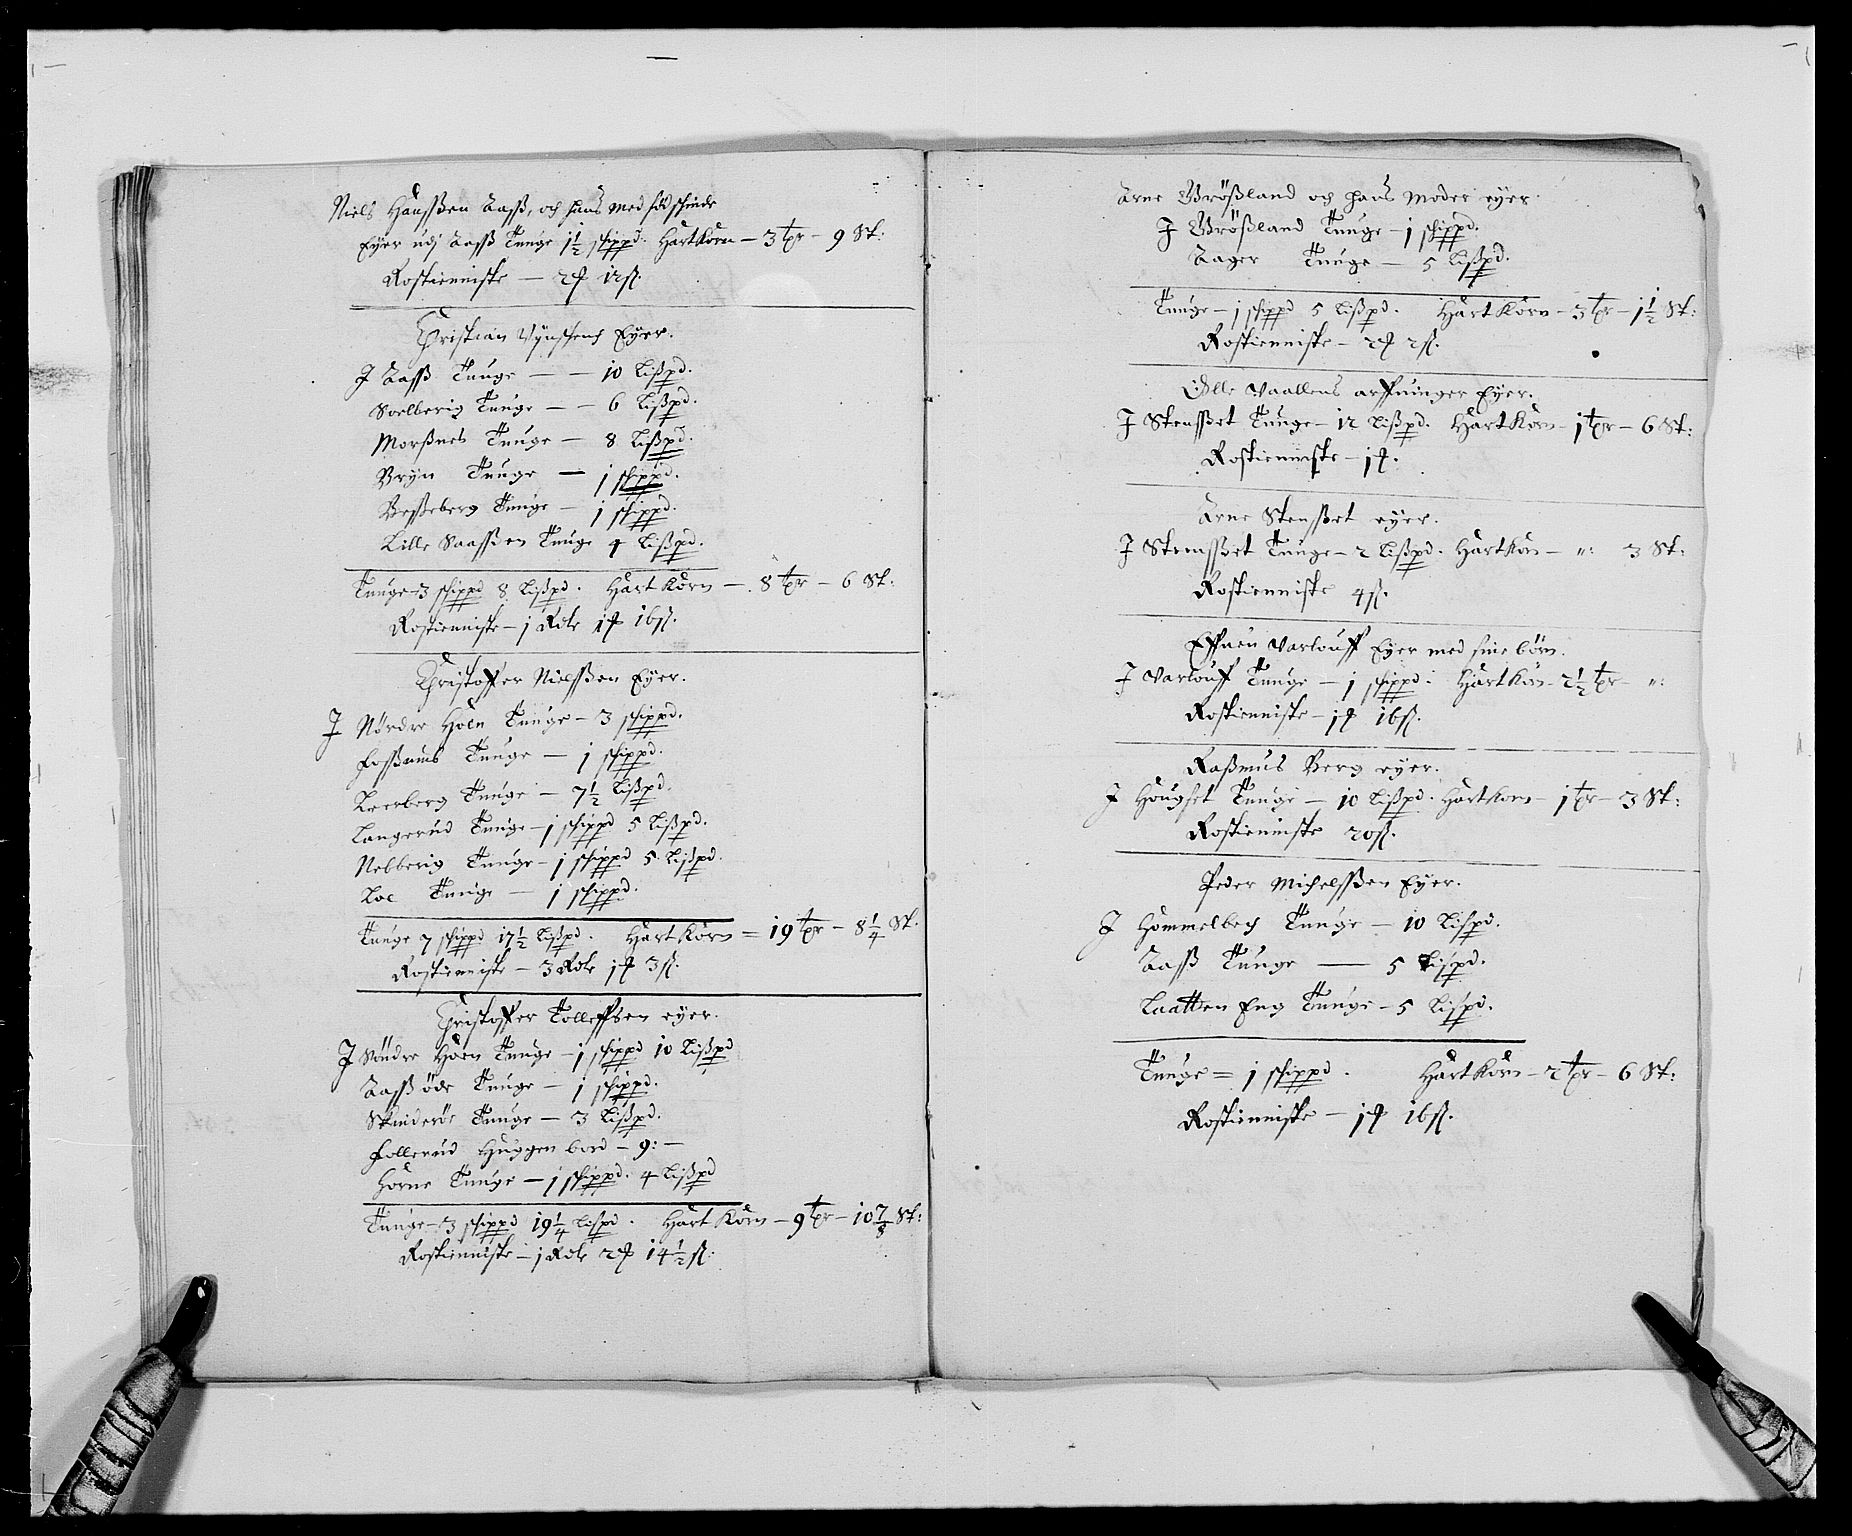 Niels Hanssen Aass, och hans medsødschinde
Eyer udj Aass Tunge 1½ schippd. Hartkorn — 3 tpr — 9 Sk:
Rostienniste — 2 ꝗ 12 ß.
Christian Eyer.
J Aass Tunge — — 10 Lißpd.
Soelberig Tunge — — 6 Lißpd.
Morßnes Tunge — 8 Lißpd.
Bryn Tunge — 1 schippd.
Besseberg Tunge — 1 schippd.
Lille Saassen Tunge 4 Lißpd.
Tunge — 3 schippd 8 Lißpd. Hart Korn — 8 tpr — 6 Sk:
Rostienniste — 1 Rdr 1 ꝗ 16 ß.
Christoffer Nielssen Eyer.
J Nördre Hoen Tunge — 3 schippd.
Fossums Tunge — 1 schippd.
Leerberg Tunge — 7½ Lißpd.
Langerud Tunge — 1 schippd 5 Lißpd.
Nebberig Tunge — 1 schippd 5 Lißpd.
Loe Tunge — 1 schippd.
Tunge 7 schippd 17½ Lißpd. Hart Korn = 19 tpr — 8¼ Sk.
Rostienniste — 3 Rdr 1 ꝗ 3 ß.
Christoffer Tolleffsen eyer.
J Söndre Hoen Tunge — 1 schippd 10 Lißpd
Aass öde Tunge — 1 schippd.
Skinderöe Tunge — 3 Lißpd.
Follerud Huggen bord — 9: —
Horne Tunge — 1 schippd. 4 Lißpd
Tunge — 3 schippd 19¼ Lißpd. Hart Korn — 9 tpr — 10⅞ Sk:
Rostienniste — 1 Rdr 2 ꝗ 14½ ß.
Arne Brößland och hans moder eyer.
J Brößland Tunge — 1 schippd.
Ager Tunge — 5 Lißpd.
Tunge — 1 schippd 5 Lißpd. Hart Korn — 3 tpr — 1½ Sk:
Rostienniste — 2 ꝗ 2 ß.
Olle Vaallens arffuinger Eyer.
J Stensset Tunge — 12 Lißpd. Hart Korn — 1 tpr — 6 Sk:
Rostienniste — 1 ꝗ.
Arne Stensset eyer.
J Stensset Tunge — 2 Lißpd. Hartkorn — ": 3 Sk:
Rostienniste 4 ß.
Effuen Varlouff Eyer med sine börn.
J Varlouff Tunge — 1 schippd. Hartkorn — 2½ tpr — ":
Rostienniste — 1 ꝗ 16 ß.
Raßmus Berg eyer.
J Hougset Tunge — 10 Lißpd. Hartkorn — 1 tpr — 3 Sk:
Rostienniste 20 ß.
Peder Michelssen Eyer.
J Hommelbech Tunge — 10 Lispd.
Aass Tunge — 5 Lispd.
Laatten Eng Tunge — 5 Lispd.
Tunge = 1 schippd. Hart Korn — 2 tpr — 6 Sk:
Rostienniste — 1 ꝗ 16 ß.